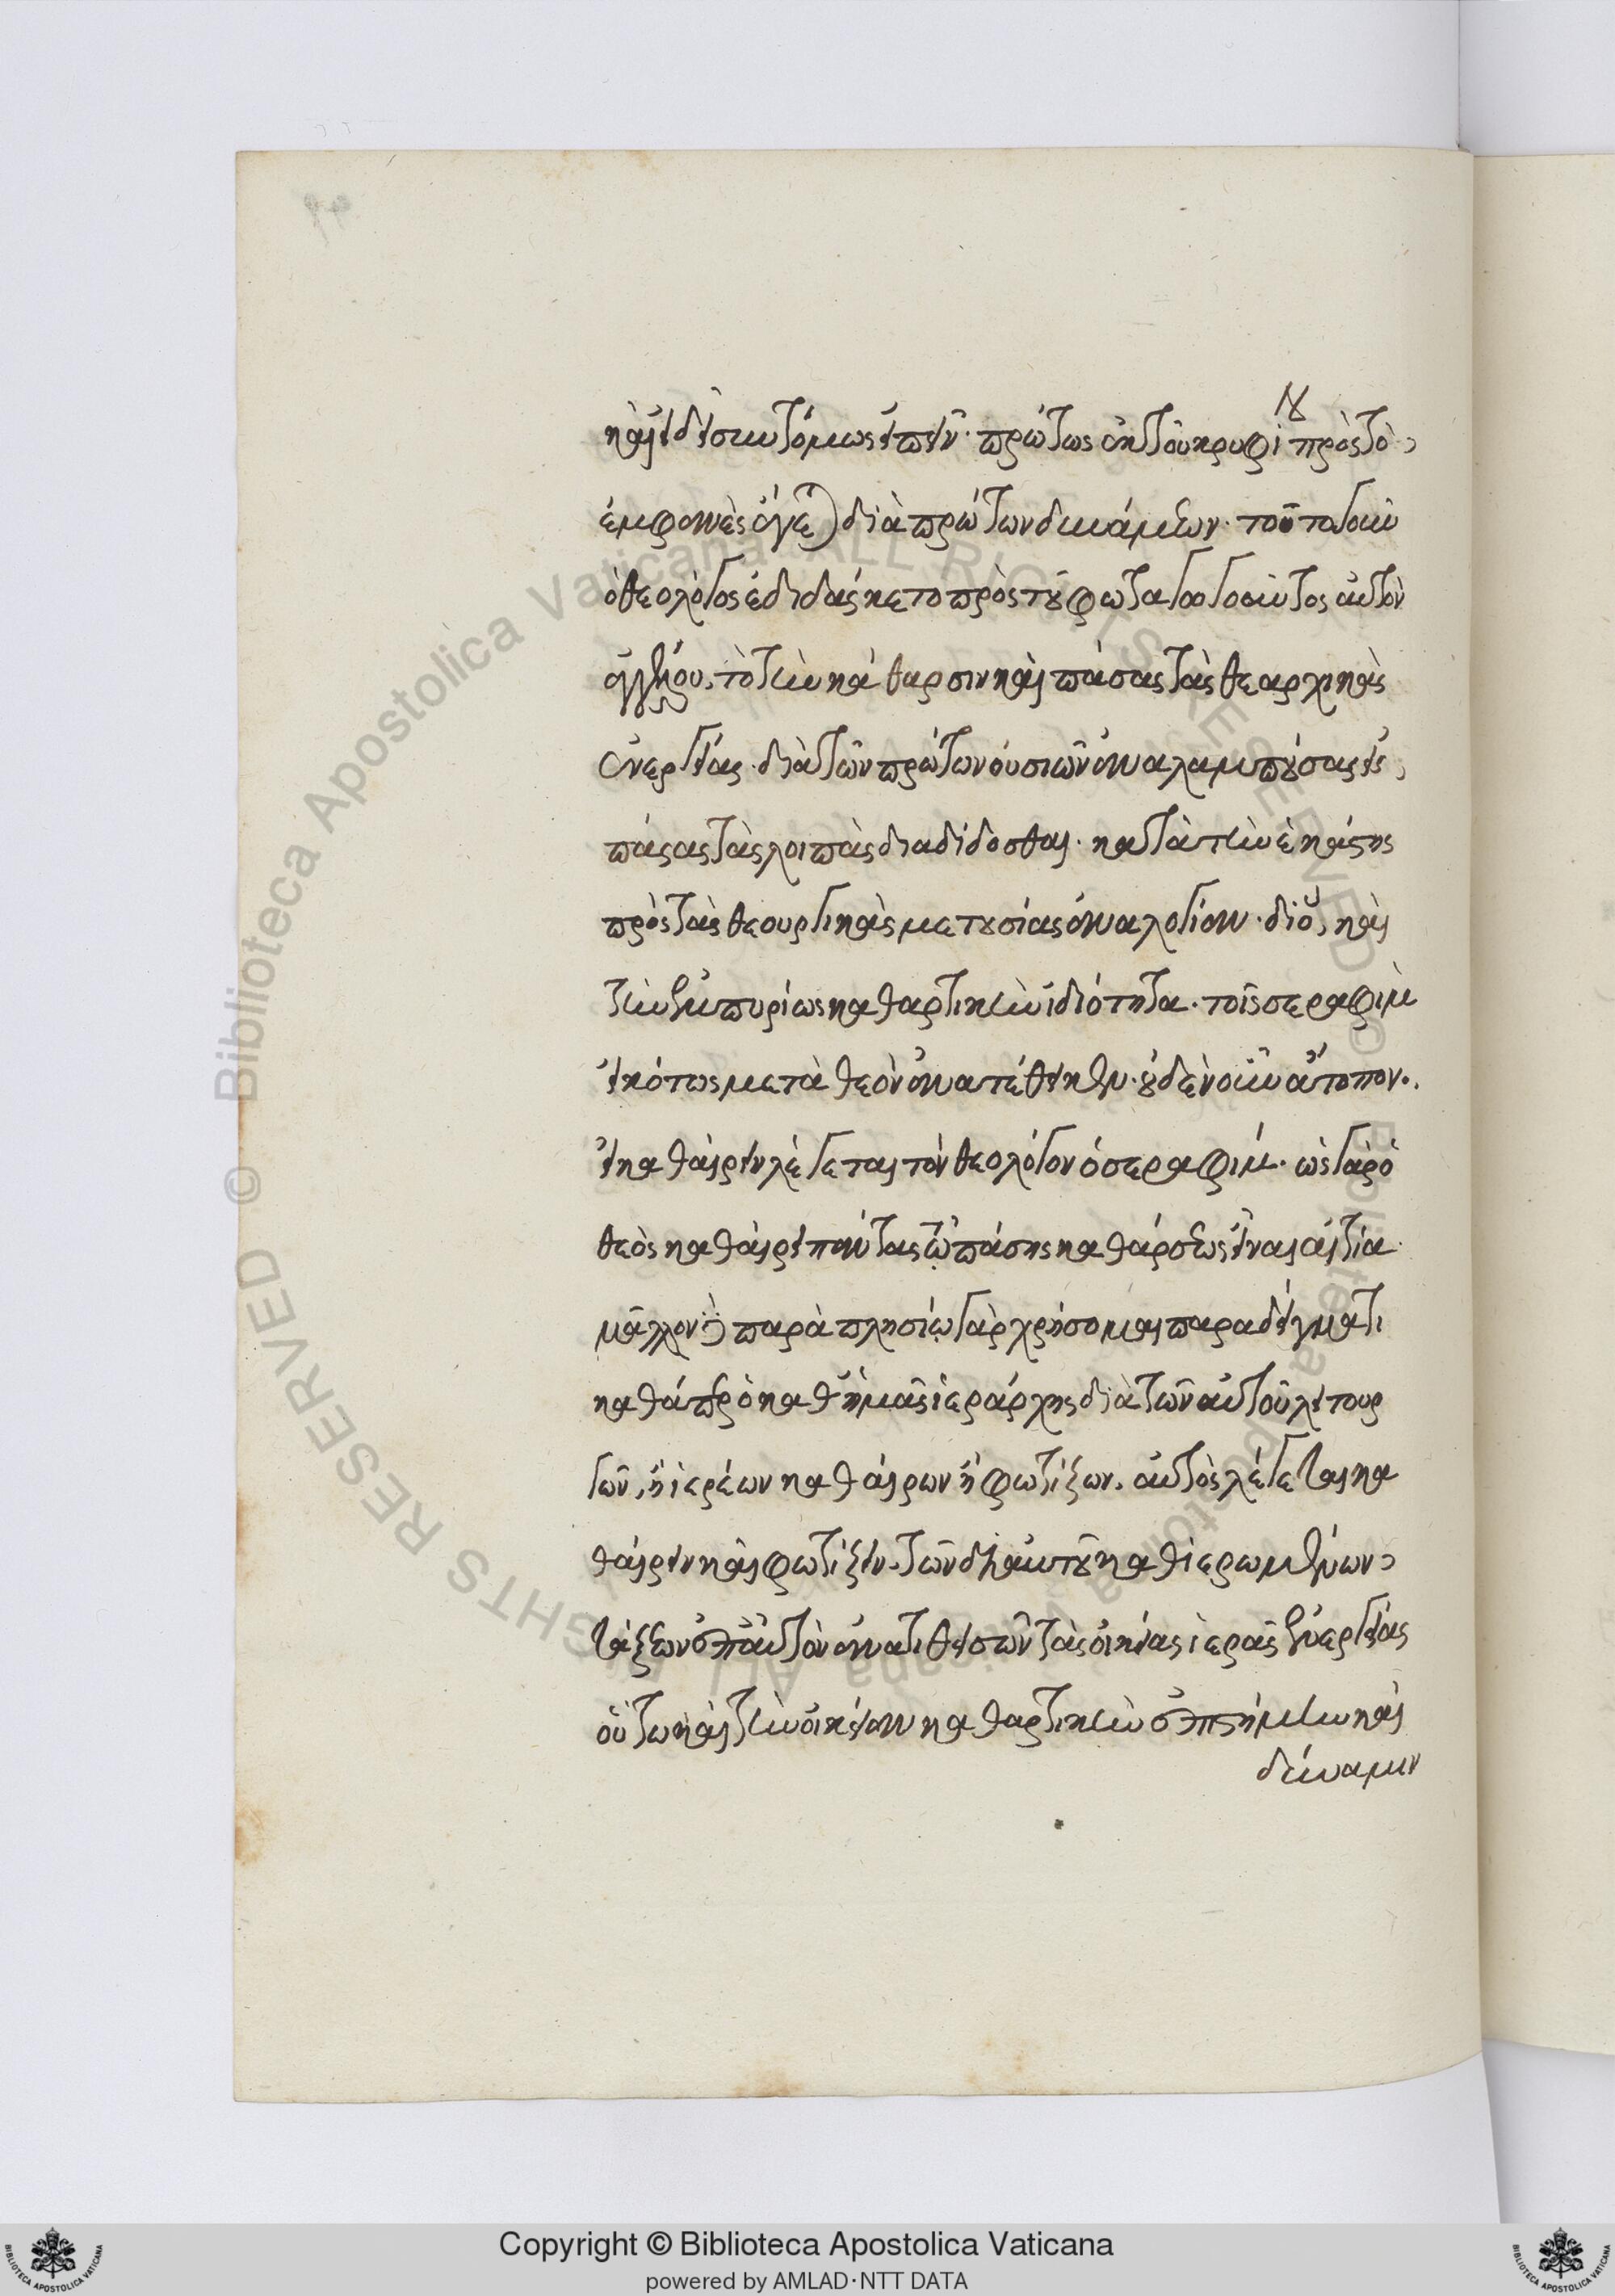 καὶ εἰ δεῖ συντόμως εἰπεῖν· πρώτως ἐκ τοῦ κρυφίου πρὸς τὸ
ἐμφανὲς ἄγεται διὰ πρώτων δυνάμεων· τοῦτο γοῦν
ὁ θεολόγος ἐδιδάσκετο πρὸς τοῦ φωταγωγοῦντος αὐτὸν
ἀγγέλου, τὸ τὴν κάθαρσιν καὶ πάσας τὰς θεαρχικὰς
ἐνεργείας· διὰ τῶν πρώτων οὐσιῶν ἀναλαμπούσας εἰς
πάσας τὰς λοιπὰς διαδίδοσθαι· κατὰ τὴν ἑκάστης
πρὸς τὰς θεουργικὰς μετουσίας ἀναλογίαν· διὸ καὶ
τὴν ἐμπυρίως καθαρτικὴν ἰδιότητα· τοῖς σεραφὶμ
εἰκότως μετὰ θεὸν ἀνατέθεικεν· οὐδὲν οὖν ἄτοπον·
εἰ καθαίρειν λέγεται τὸν θεολόγον ὁ σεραφίμ· ὡς γὰρ ὁ
θεὸς καθαίρει πάντας τῷ πάσης καθάρσεως εἶναι αἰτία·
μᾶλλον δὲ παραπλησίῳ γὰρ χρήσομαι παραδείγματι
καθάπερ ὁ καθ' ἡμᾶς ἱεράρχης διὰ τῶν αὐτοῦ λειτουρ
γῶν, ἢ ἱερέων καθαίρων ἢ φωτίζων, αὐτὸς λέγεται κα
θαίρειν καὶ φωτίζειν· τῶν δι' αὐτοῦ καθιερωμένων
τάξεων ἐπ' αὐτὸν ἀνατιθεισῶν τὰς οἰκείας ἱερὰς ἐνεργείας
οὕτω καὶ τὴν οἰκείαν καθαρτικὴν ἐπιστήμην καὶ
δύναμιν